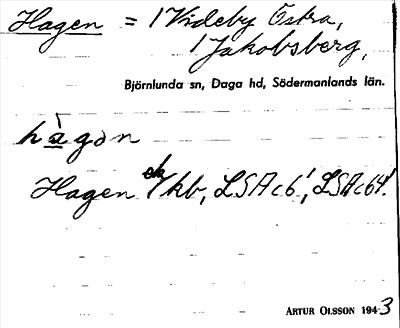 Hagen = 1 Videby Östra,
1 Jakobsberg,
Björnlunda sn, Daga hd, Södermanlands län.
hàgən
Hagen ek/kb, LSA c6', LSA c64'.
ARTUR OLSSON 1943